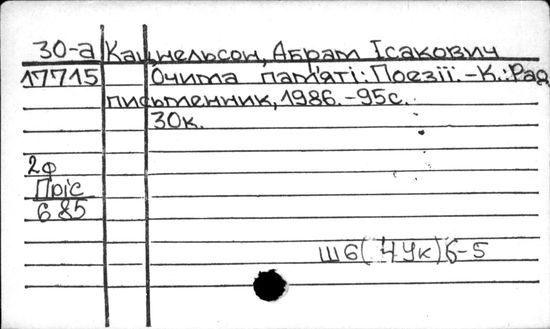 30-а Кацнельсон, Абрам Ісакович
17715 Очима пам'яті: Поезії. – К.: Рад.
письменник, 1986. – 95с.
30к.
2ф
Пріс
685
Ш6(4Ук)6-5